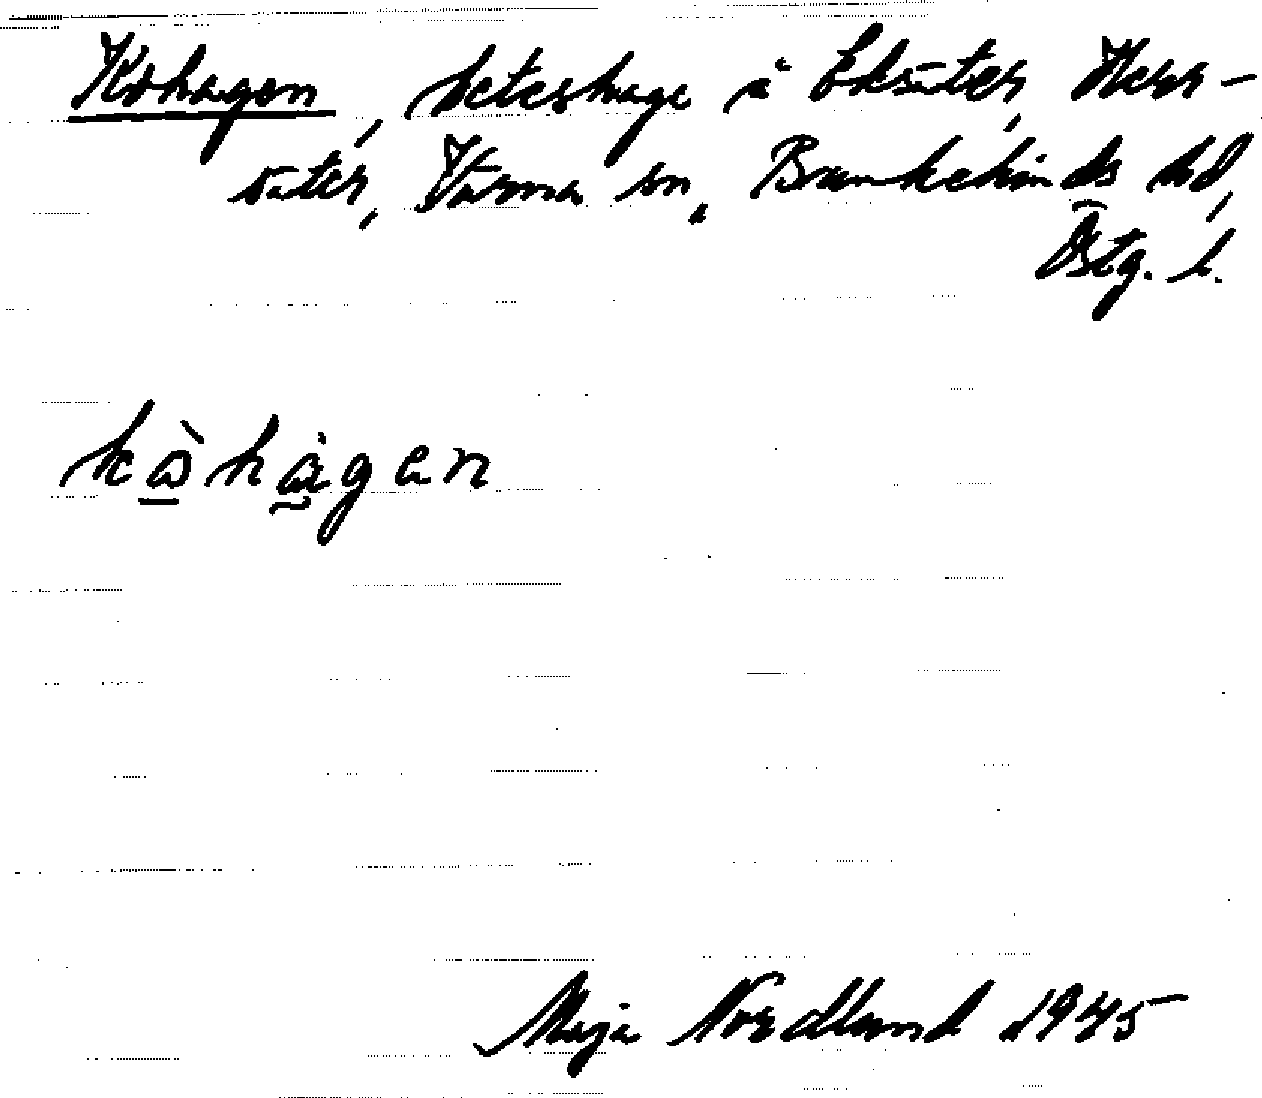 Kohagen, beteshage å Eksäter, Herr-
säter, Värna sn, Bankekinds hd,
Östg. l.
kåhågen
Maja Nordlund 1945